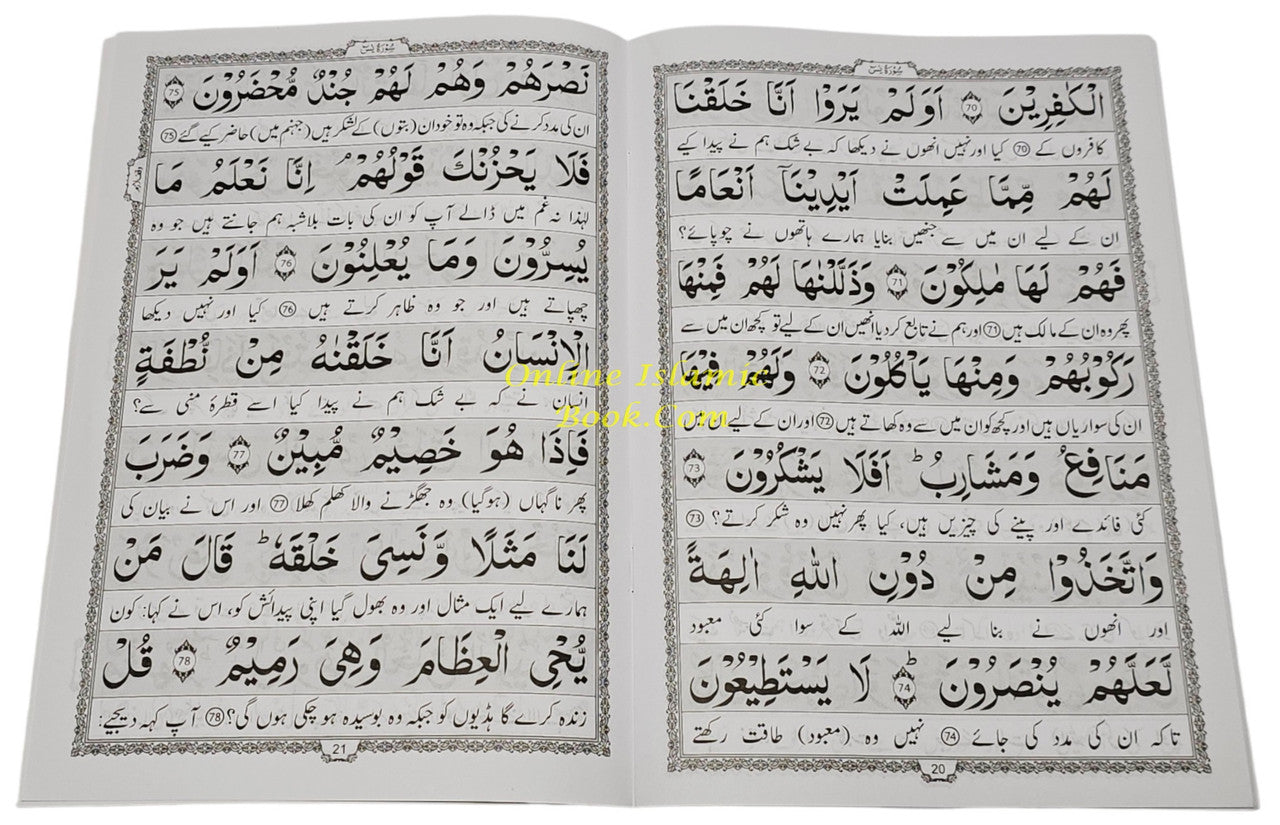 سُوْرَةُ يٰسٓ
الْكٰفِرِيْنَ ﴿70﴾ اَوَلَمْ يَرَوْا اَنَّا خَلَقْنَا
کافروں کے ﴿70﴾ کیا اور نہیں انھوں نے دیکھا کہ بے شک ہم نے پیدا کیے
لَهُمْ مِّمَّا عَمِلَتْ اَيْدِيْنَاۤ اَنْعَامًا
ان کے لیے ان میں سے جنھیں بنایا ہمارے ہاتھوں نے چوپائے؟
فَهُمْ لَهَا مٰلِكُوْنَ ﴿71﴾ وَذَلَّلْنٰهَا لَهُمْ فَمِنْهَا
پھر وہ ان کے مالک ہیں ﴿71﴾ اور ہم نے تابع کر دیا انھیں ان کے لیے تو کچھ ان میں سے
رَكُوْبُهُمْ وَمِنْهَا يَاْكُلُوْنَ ﴿72﴾ وَلَهُمْ فِيْهَا
ان کی سواریاں ہیں اور کچھ کو ان میں سے وہ کھاتے ہیں ﴿72﴾ اور ان کے لیے ان میں
مَنَافِعُ وَمَشَارِبُ ؕ اَفَلَا يَشْكُرُوْنَ ﴿73﴾
کئی فائدے اور پینے کی چیزیں ہیں، کیا پھر نہیں وہ شکر کرتے؟ ﴿73﴾
وَاتَّخَذُوْا مِنْ دُوْنِ اللّٰهِ اٰلِهَةً
اور انھوں نے بنا لیے اللہ کے سوا کئی معبود
لَّعَلَّهُمْ يُنْصَرُوْنَ ﴿74﴾ؕ لَا يَسْتَطِيْعُوْنَ
تاکہ ان کی مدد کی جائے ﴿74﴾ نہیں وہ (معبود) طاقت رکھتے
20
سُوْرَةُ يٰسٓ
نَصْرَهُمْ وَهُمْ لَهُمْ جُنْدٌ مُّحْضَرُوْنَ ﴿75﴾
ان کی مدد کرنے کی جبکہ وہ تو خود ان (بتوں) کے لشکر ہیں (جہنم میں) حاضر کیے گئے ﴿75﴾
فَلَا يَحْزُنْكَ قَوْلُهُمْ ۘ اِنَّا نَعْلَمُ مَا
لہٰذا نہ غم میں ڈالے آپ کو ان کی بات بلاشبہ ہم جانتے ہیں جو وہ
يُسِرُّوْنَ وَمَا يُعْلِنُوْنَ ﴿76﴾ اَوَلَمْ يَرَ
چھپاتے ہیں اور جو وہ ظاہر کرتے ہیں ﴿76﴾ کیا اور نہیں دیکھا
الْاِنْسَانُ اَنَّا خَلَقْنٰهُ مِنْ نُّطْفَةٍ
انسان نے کہ بے شک ہم نے پیدا کیا اسے قطرۂ منی سے؟
فَاِذَا هُوَ خَصِيْمٌ مُّبِيْنٌ ﴿77﴾ وَضَرَبَ
پھر ناگہاں (ہو گیا) وہ جھگڑنے والا کھلم کھلا ﴿77﴾ اور اس نے بیان کی
لَنَا مَثَلًا وَّنَسِيَ خَلْقَهٗ ؕ قَالَ مَنْ
ہمارے لیے ایک مثال اور وہ بھول گیا اپنی پیدائش کو، اس نے کہا: کون
يُّحْيِ الْعِظَامَ وَهِيَ رَمِيْمٌ ﴿78﴾ قُلْ
زندہ کرے گا ہڈیوں کو جبکہ وہ بوسیدہ ہو چکی ہوں گی؟ ﴿78﴾ آپ کہہ دیجیے:
21
Online Islamic
Book.Com